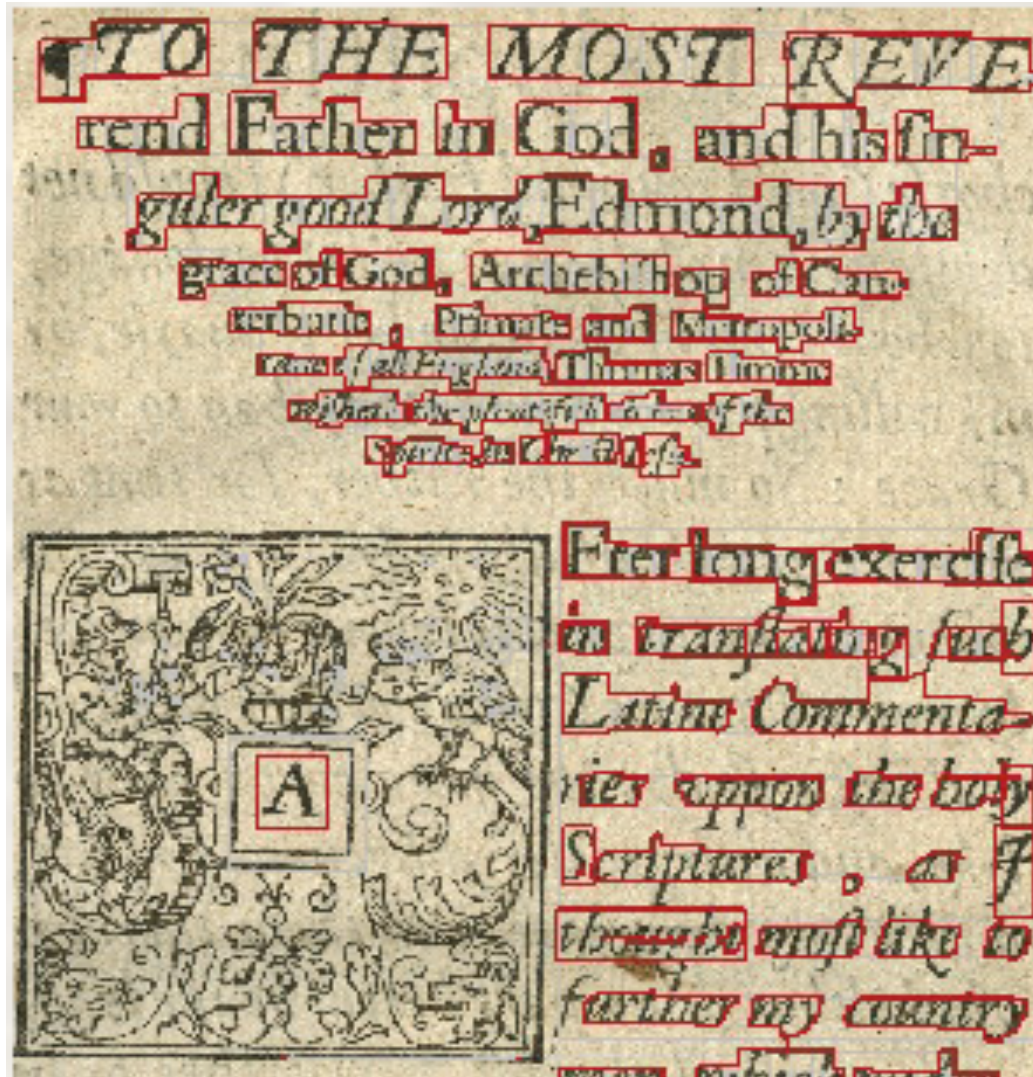 ¶TO THE MOST REVE
rend Father in God, and his ſin-
guler good Lord, Edmond, by the
grace of God, Archebiſhop of Can-
terburie, Primate and Metropoli-
tane of all England, Thomas Timme
wiſheth the plentifull riches of the
Spirite, in Chriſt Ieſu.
AFter long exerciſe
in tranſlating ſuch
Latine Commenta-
ries vppon the holy
Scriptures, as I
thought moſt like to
further my country